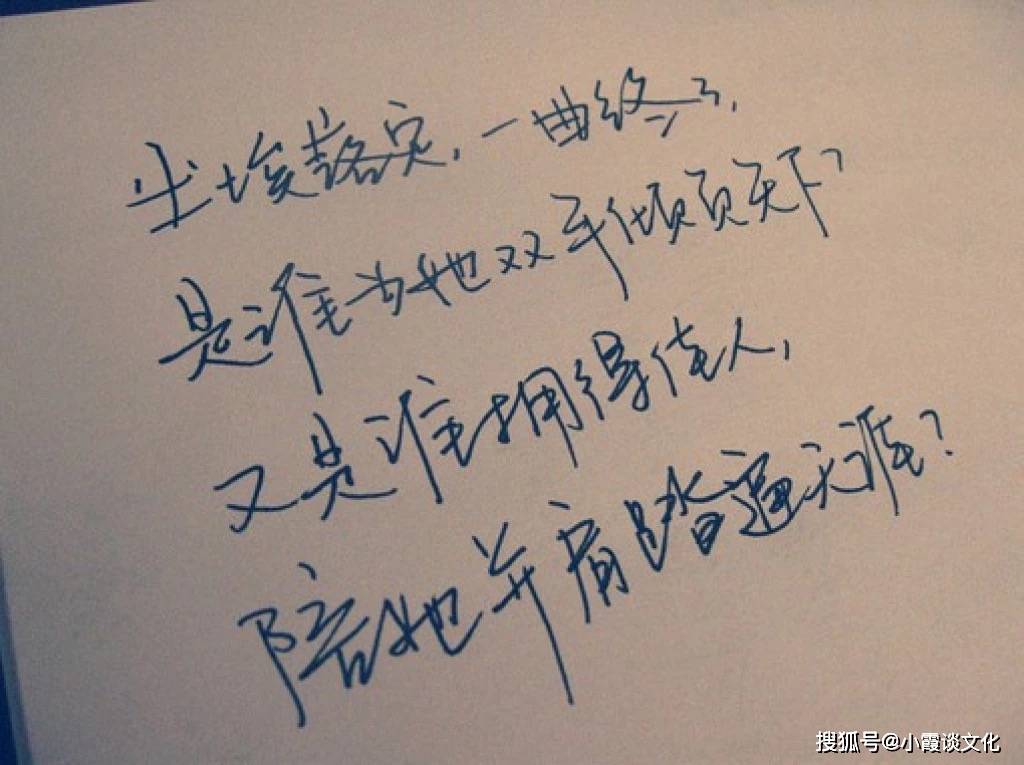 尘埃落定，一曲终了，
是谁为她双手倾负天下？
又是谁拥得佳人，
陪她并肩踏遍天涯？
搜狐号@小霞谈文化